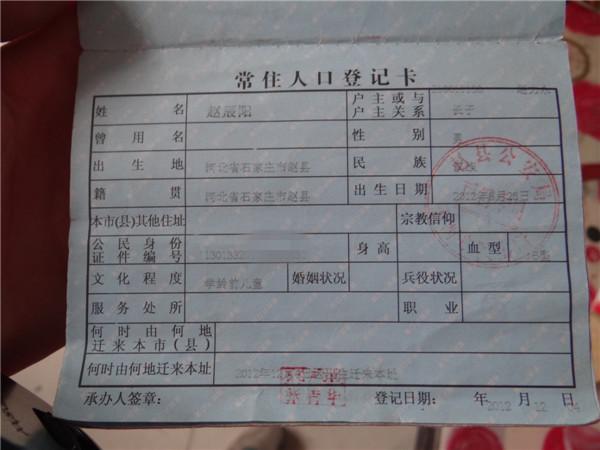 常住人口登记卡
姓名 赵宸阳 户主或与户主关系 长子
曾用名 性别 男
出生地 河北省石家庄市赵县 民族 汉族
籍贯 河北省石家庄市赵县 出生日期 2012年8月26日
本市(县)其他住址 宗教信仰
公民身份证件编号 身高 血型
文化程度 学龄前儿童 婚姻状况 兵役状况
服务处所 职业
何时由何地迁来本市(县)
何时由何地迁来本址
承办人签章: 登记日期: 2012年12月04日